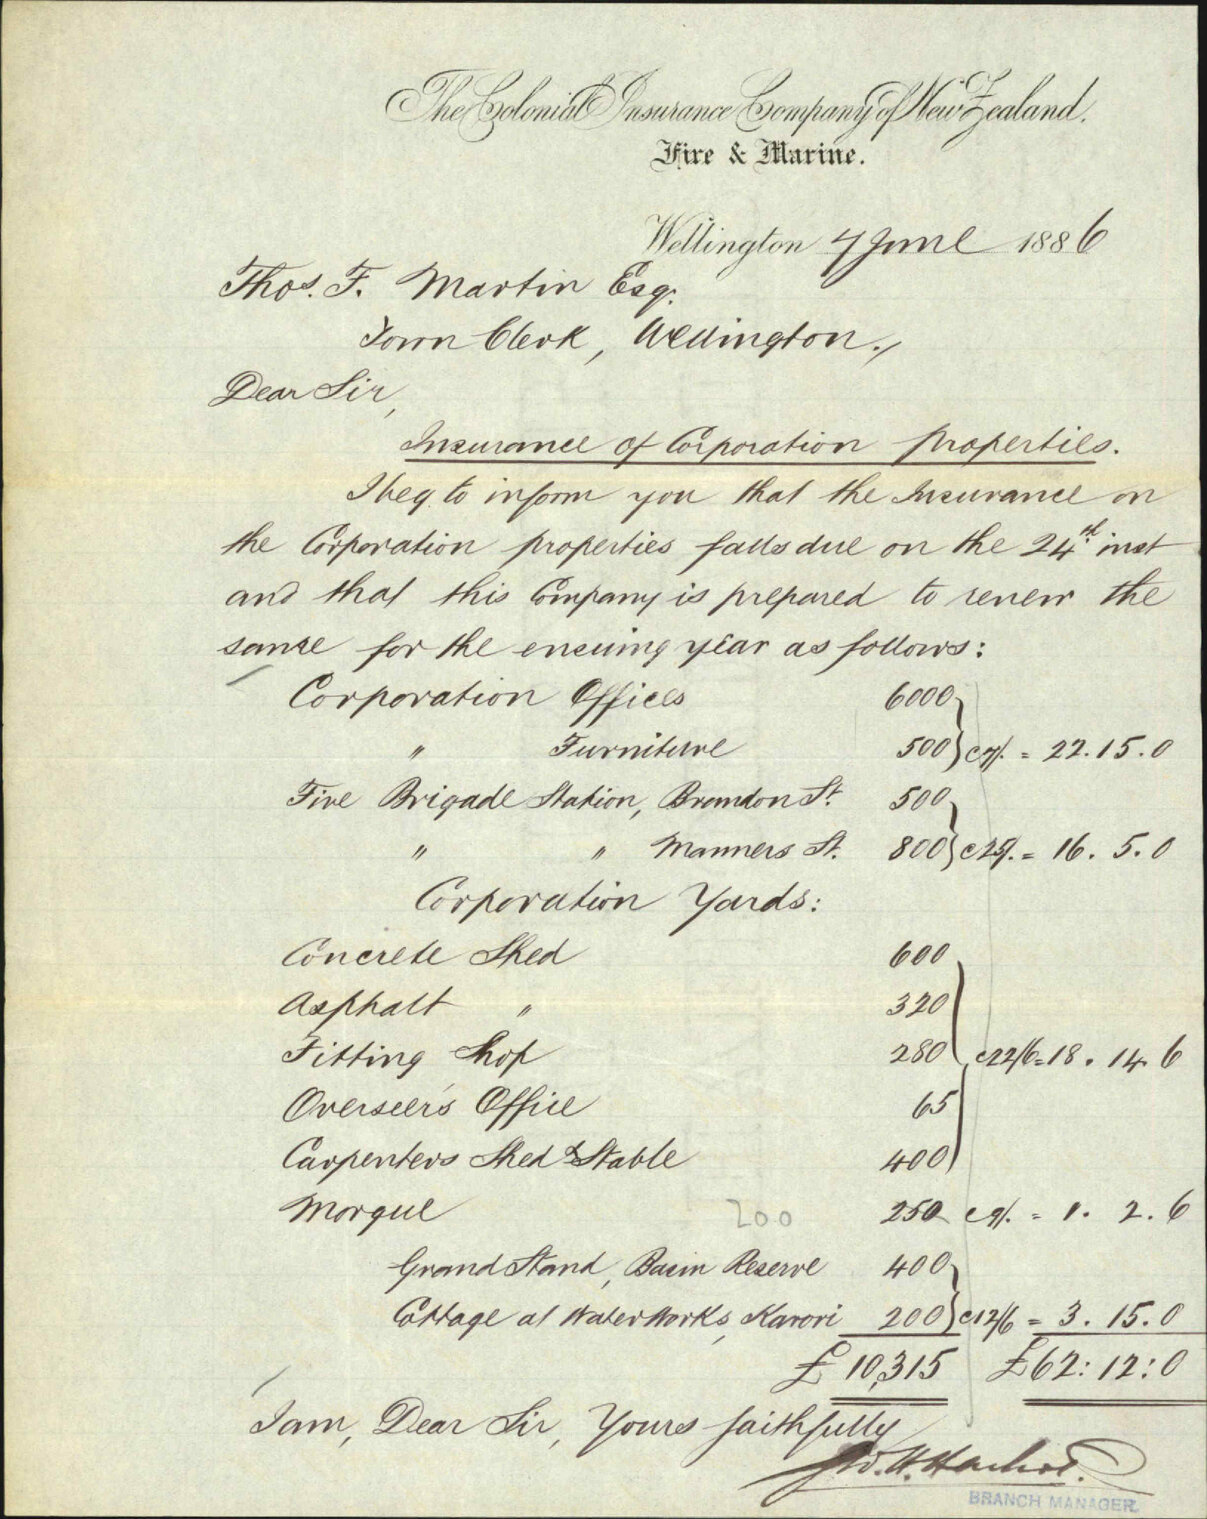 The Colonial Insurance Company of New Zealand.
Fire & Marine.
Wellington 7 June 1886
Thos. F. Martin Esq.
Town Clerk, Wellington.,
Dear Sir,
Insurance of Corporation Properties.
I beg to inform you that the Insurance on
the Corporation properties falls due on the 24th inst
and that this Company is prepared to renew the
same for the ensuing year as follows:
Corporation Offices 6000
" Furniture 500 @ 7/. = 22.15.0
Fire Brigade Station, Brandon St. 500
" " Manners St. 800 @ 25/. = 16.5.0
Corporation Yards:
Concrete Shed 600
Asphalt " 320
Fitting Shop 280 @ 22/6 = 18.14.6
Overseer's Office 65
Carpenters Shed & Stable 400
Morgue 200 250 @ 9/. = 1.2.6
Grand Stand, Basin Reserve 400
Cottage at WaterWorks, Karori 200 @ 12/6 = 3.15.0
£10,315 £62:12:0
I am, Dear Sir, Yours faithfully
BRANCH MANAGER